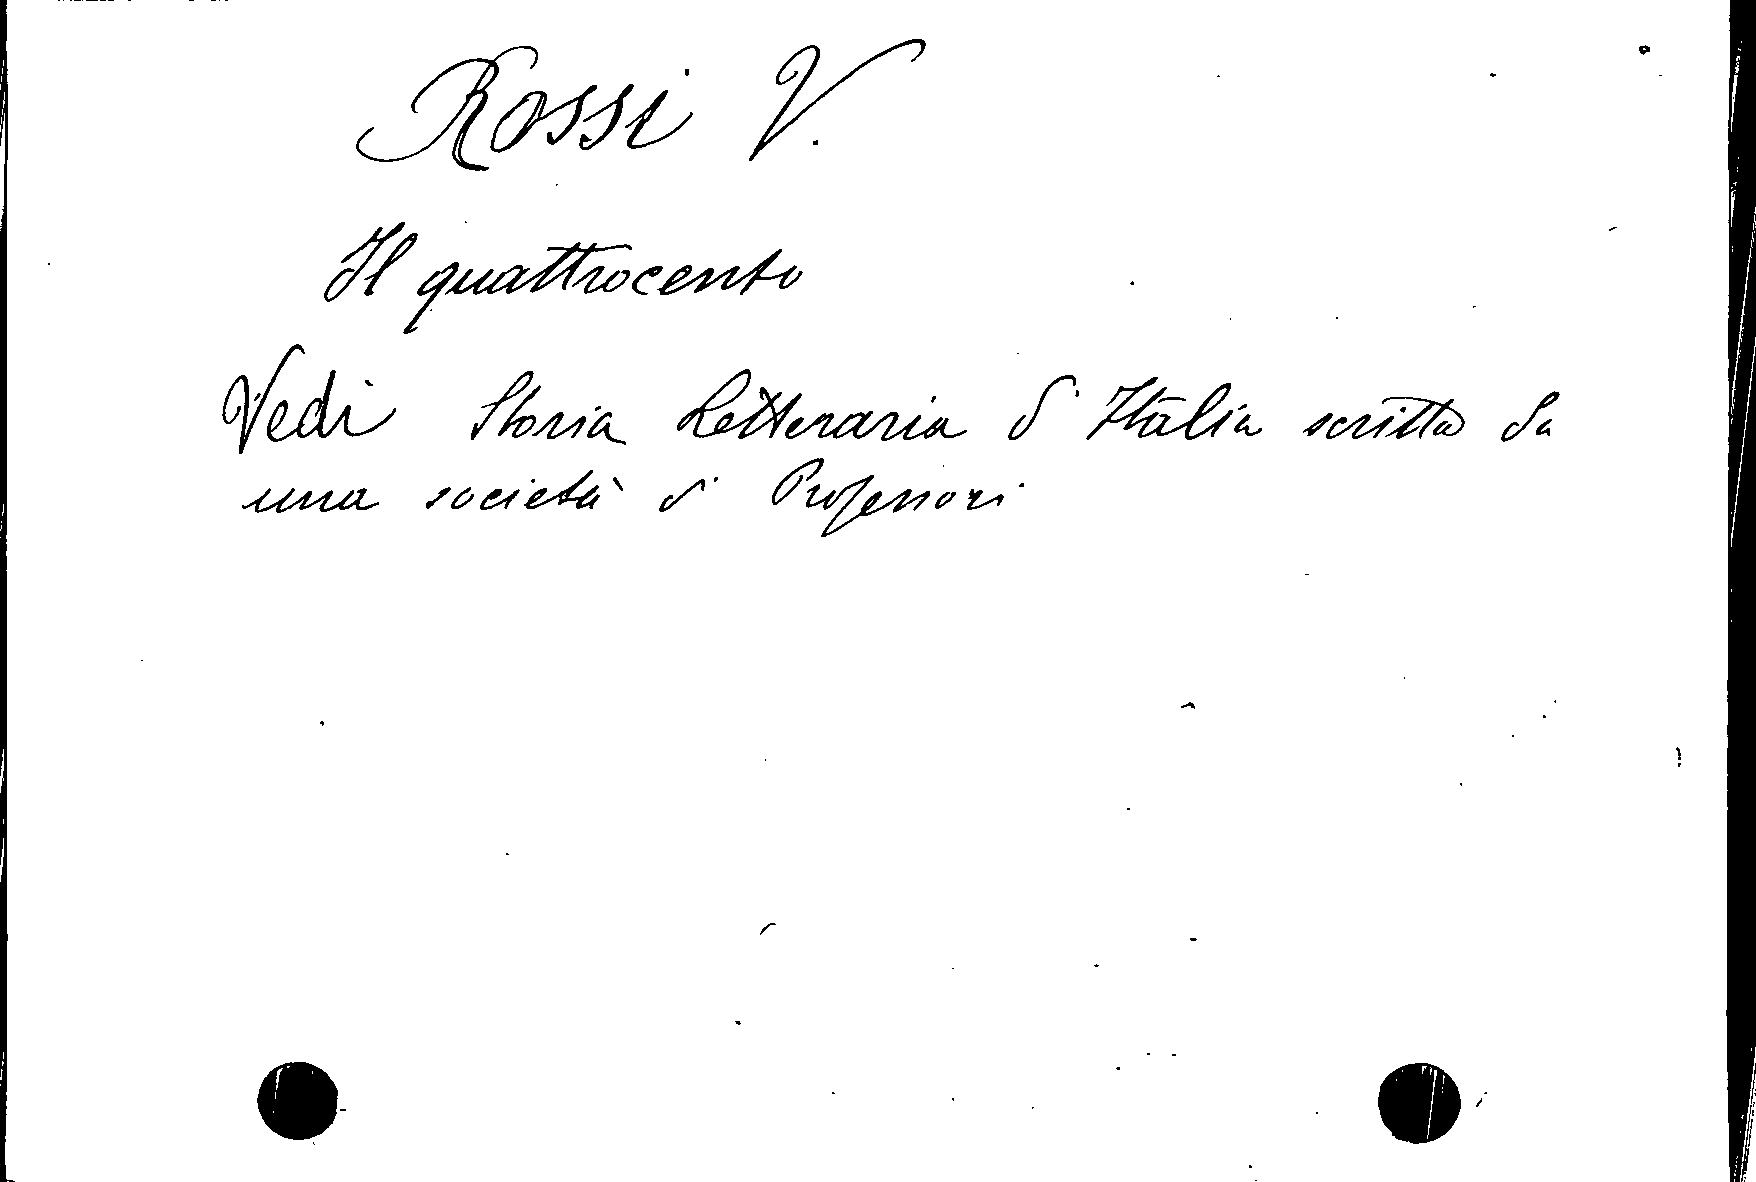 Rossi V.
Il quattrocento
Vedi Storia Letteraria d'Italia scritta da
una società di Professori